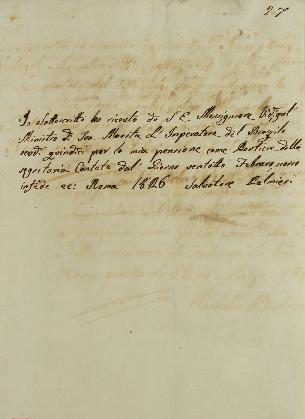 27
Io Sottoscritto ho ricevuto da S. E. Monsignore Vidigal
Ministro di Sua Maestà L'Imperatore del Brasile
scudi quindici per la mia pensione come Portiere della
Contata dal Giorno ventotto Febraro
in fede ec: Roma 1826 Salvatore Palmieri